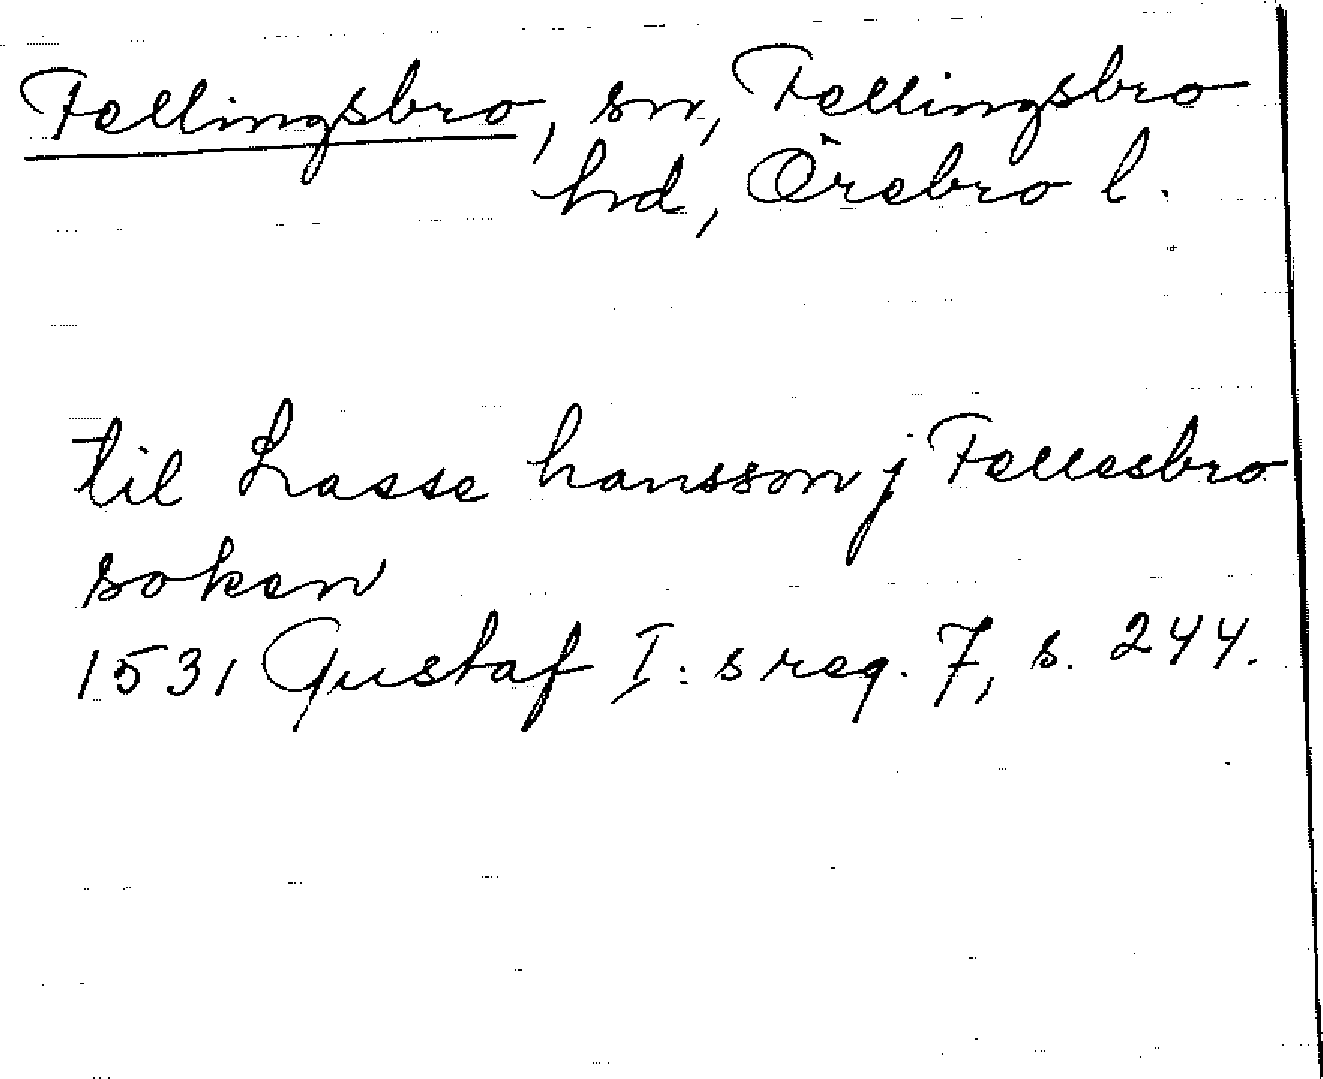 Fellingsbro, sn, Fellingsbro
hd, Örebro l.
til Lasse hansson j Fellesbro
soken
1531 Gustaf I:s reg. 7, s. 244.